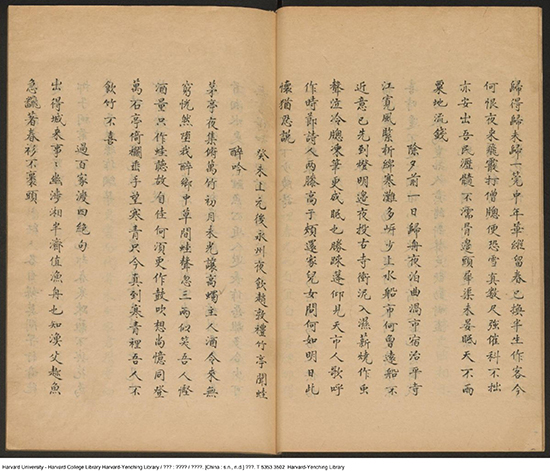 歸得歸未歸一笑中年華縱留春已換半生作客今
何恨夜來飛霰打僧牎便恐雪真數尺強催科不拙
亦安出吾民瀝髓不濡骨邊頭犖渠未晏眠天不雨
粟地流錢
除夕前一日歸舟夜泊曲渦市宿治平寺
江寬風緊折綿寒灘多岍少上水船市何曾遠船不
近意已先到燈明邊夜投古寺衝泥入濕薪燒作虫
聲泣冷牎凍筆更成眠也勝疎蓬仰見天市人歌呼
作時節詩人兩膝高于頰還家兒女問何如明日此
懷猶忍說
癸未上元後永州夜飲趙敦禮竹亭聞蛙
醉吟
茅亭夜集俯萬竹初月未光讓高燭主人酒令來無
窮恍然墮我醉鄉中草間蛙聲忽三兩似笑吾人慳
酒量只作蛙聽故自佳何須更作鼓吹想尚憶同登
萬石亭倚欄垂手望寒青只今真到寒青裡吾人不
飲竹不喜
過百家渡四絶句
出得城來事事幽涉湘半濟值漁舟也知漁父趂魚
急飜著春衫不裹頭
Harvard University - Harvard College Library Harvard-Yenching Library / ??? : ???? / ????. [China : s.n., n.d.] ???. T 5353 3502 Harvard-Yenching Library